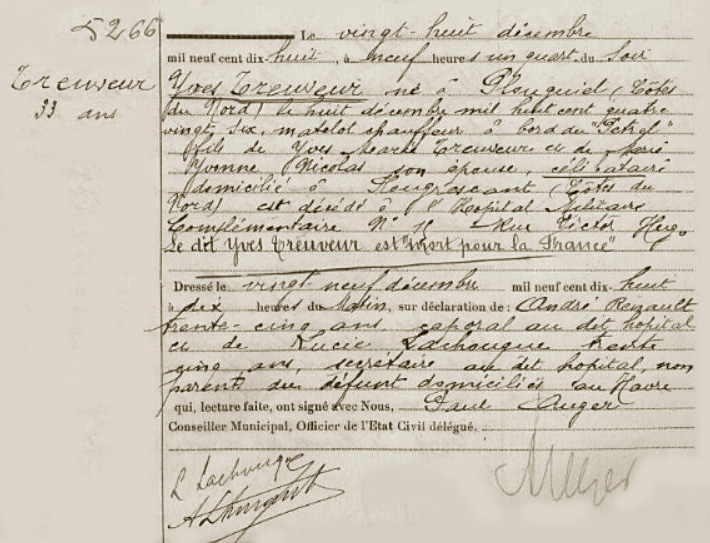 5266
Treuveur
33 ans
Le vingt-huit décembre
mil neuf cent dix-huit, à neuf heures un quart du Soir
Yves Treuveur né à Plouguiel (Côtes
du Nord) le huit décembre mil huit cent quatre
vingt six, matelot chauffeur à bord du "Pétrel"
fils de Yves Marie Treuveur et de Marie
Yvonne Nicolas son épouse, célibataire
domicilié à Plougrescant (Côtes du
Nord) est décédé à l'Hopital Militaire
Complémentaire N° Rue Victor Hugo
Le dit Yves Treuveur est "Mort pour la France"
Dressé le vingt neuf décembre mil neuf cent dix-huit
à dix heures du Matin, sur déclaration de: André Renault
trente-cinq ans, caporal au dit hopital
et de Lucie Lachouque trente
cinq ans, secrétaire au dit hopital, non
parents du défunt domiciliés au Havre
qui, lecture faite, ont signé avec Nous, Paul Auger
Conseiller Municipal, Officier de l'Etat Civil délégué.
L Lachouque